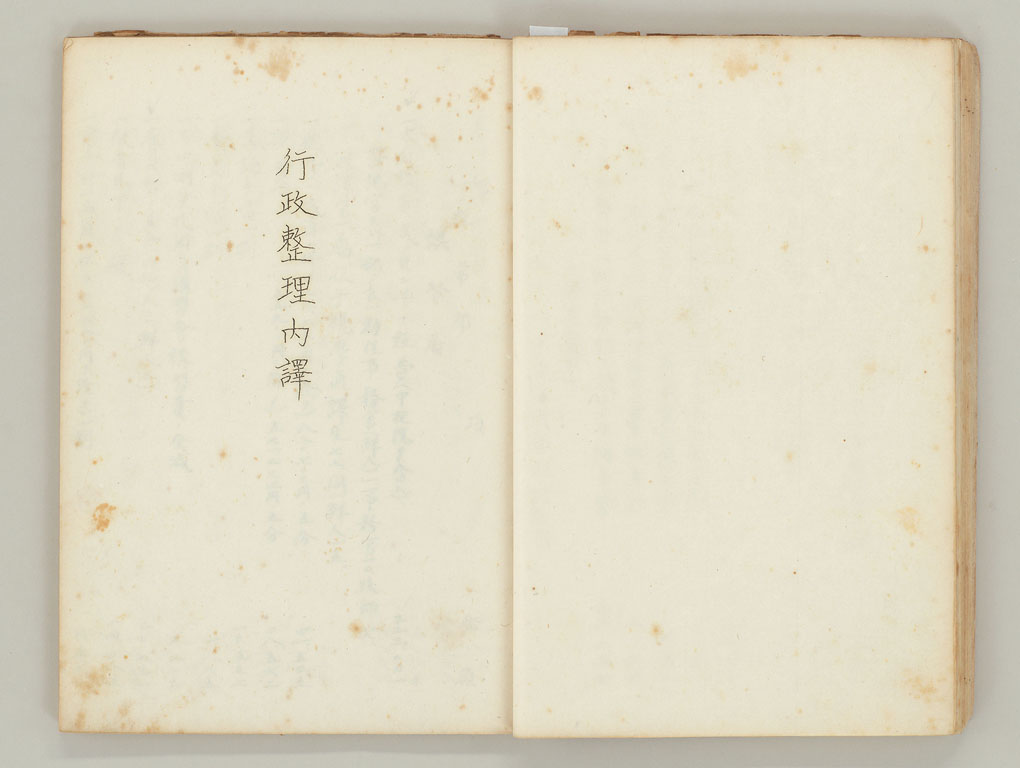 行政整理內譯